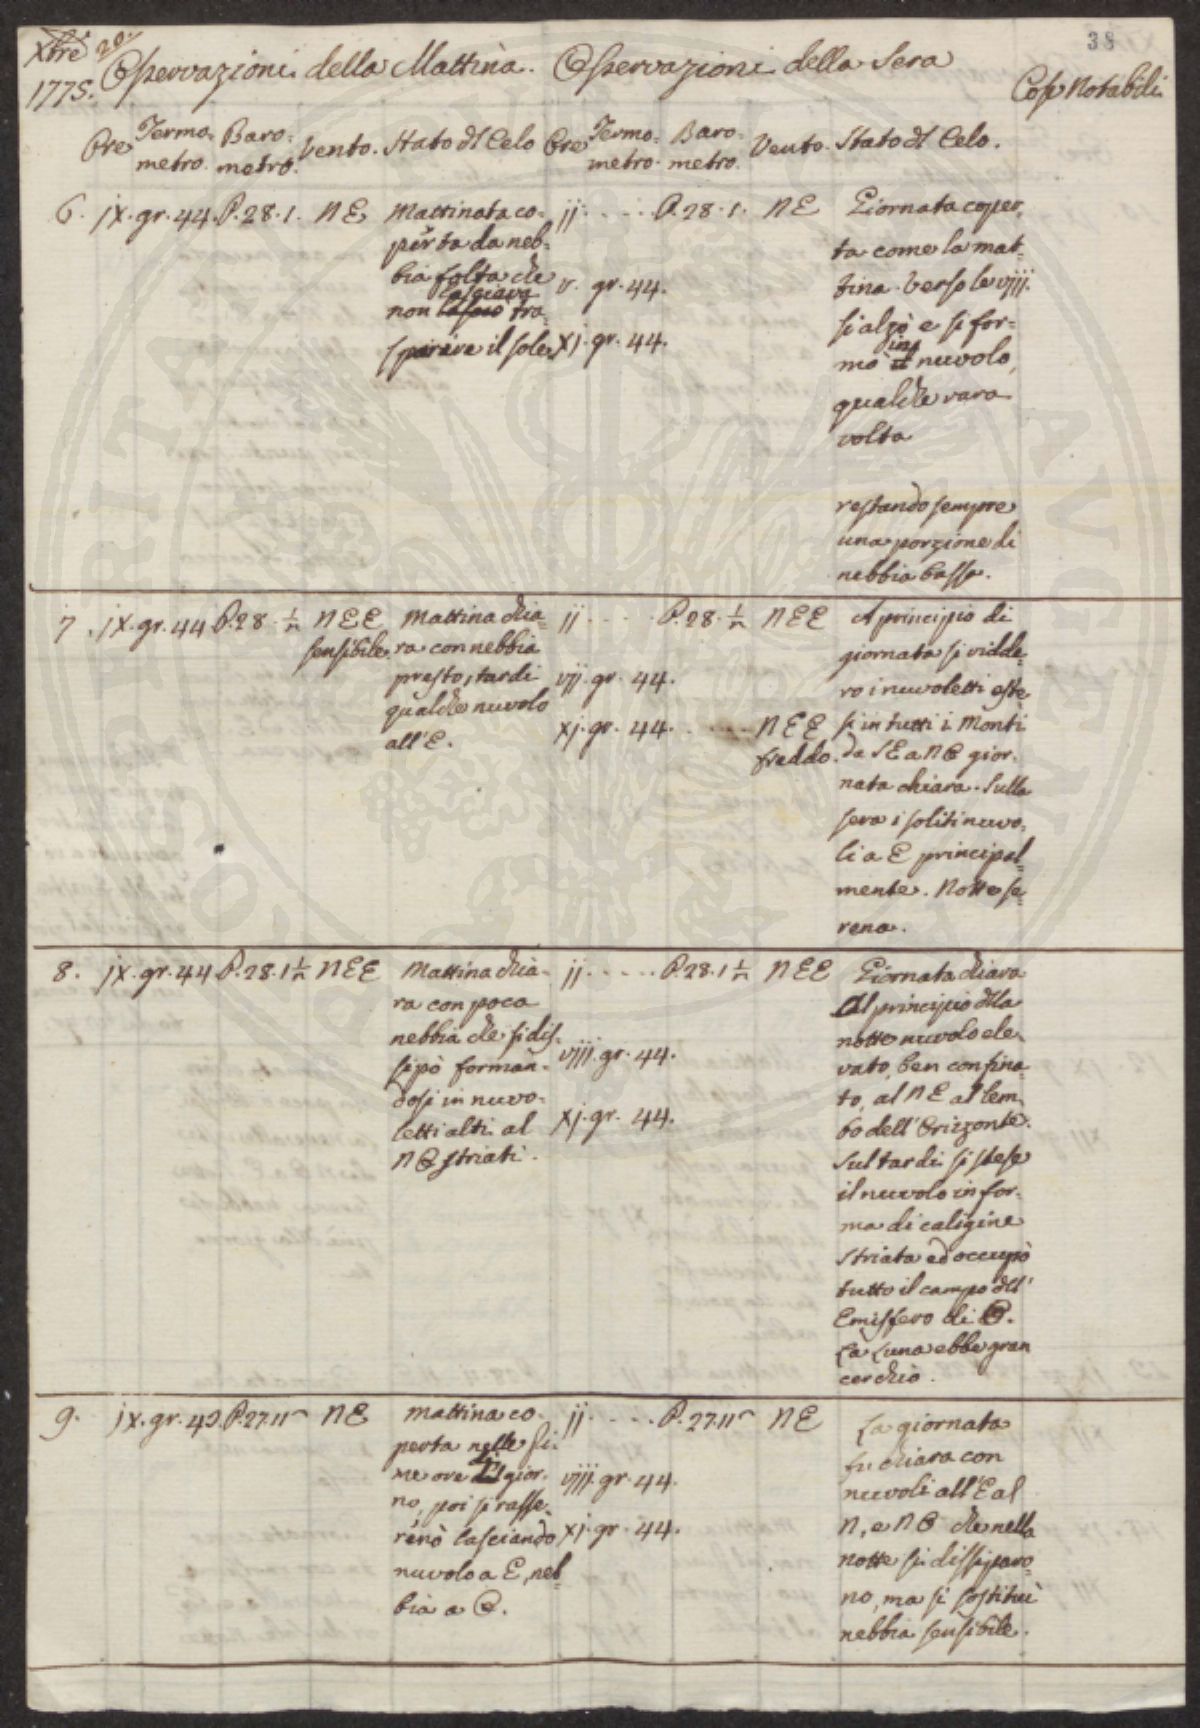 Xbre 20.
38
1775. Osservazioni della Mattina. Osservazioni della Sera
Cose Notabili
Ore Termo- Baro- Vento. Stato dl Celo Ore Termo- Baro- Vento. Stato dl Celo.
metro. metro. metro. metro.
6. jx. gr. 44. P. 28. 1. NE Mattinata co-
perta da neb-
bia folta che
lasciava
non lascio tra-
sparire il sole
jj. . . . . P. 28. 1. NE
v. gr. 44.
xj. gr. 44.
Giornata coper-
ta come la mat-
tina. Verso le viij.
si alzò e si for-
in
mò il nuvolo,
qualche rara
volta
restando sempre
una porzione di
nebbia bassa.
7. jx. gr. 44 P. 28. 1/n NEE Mattina chia-
sensibile. ra con nebbia
presto, tardi
qualche nuvolo
all'E.
jj. . . . . P. 28. 1/n NEE
vij. gr. 44.
xj. gr. 44. . . . . . NEE
freddo.
A principio di
giornata si vidde-
ro i nuvoletti este-
si in tutti i Monti
da SE a NO gior-
nata chiara. Sulla
sera i soliti nuvo-
li a E principal-
mente. Notte se-
rena.
8. jx. gr. 44 P. 28. 1 1/n NEE Mattina chia-
ra con poca
nebbia che si dis-
sipò forman-
dosi in nuvo-
letti alti al
NO striati.
jj. . . . . P. 28. 1 1/n NEE
viij. gr. 44.
xj. gr. 44.
Giornata chiara
Al principio dlla
notte nuvolo ele-
vato, ben confina-
to, al NE al lem-
bo dell'Orizzonte.
Sul tardi si stese
il nuvolo in for-
ma di caligine
striata ed occupò
tutto il campo dll'
Emisfero di O.
La Luna ebbe gran
cerchio.
9. jx. gr. 43. P. 27. 11 NE Mattina co-
perta nelle pri-
me ore dl gior-
no, poi si rasse-
renò lasciando
nuvolo a E, neb-
bia a O.
jj. . . . . P. 27. 11 NE
viij. gr. 44.
xj. gr. 44.
La giornata
fu chiara con
nuvoli all'E al
N, e NO che nella
notte si dissiparo-
no, ma si sostituì
nebbia sensibile.